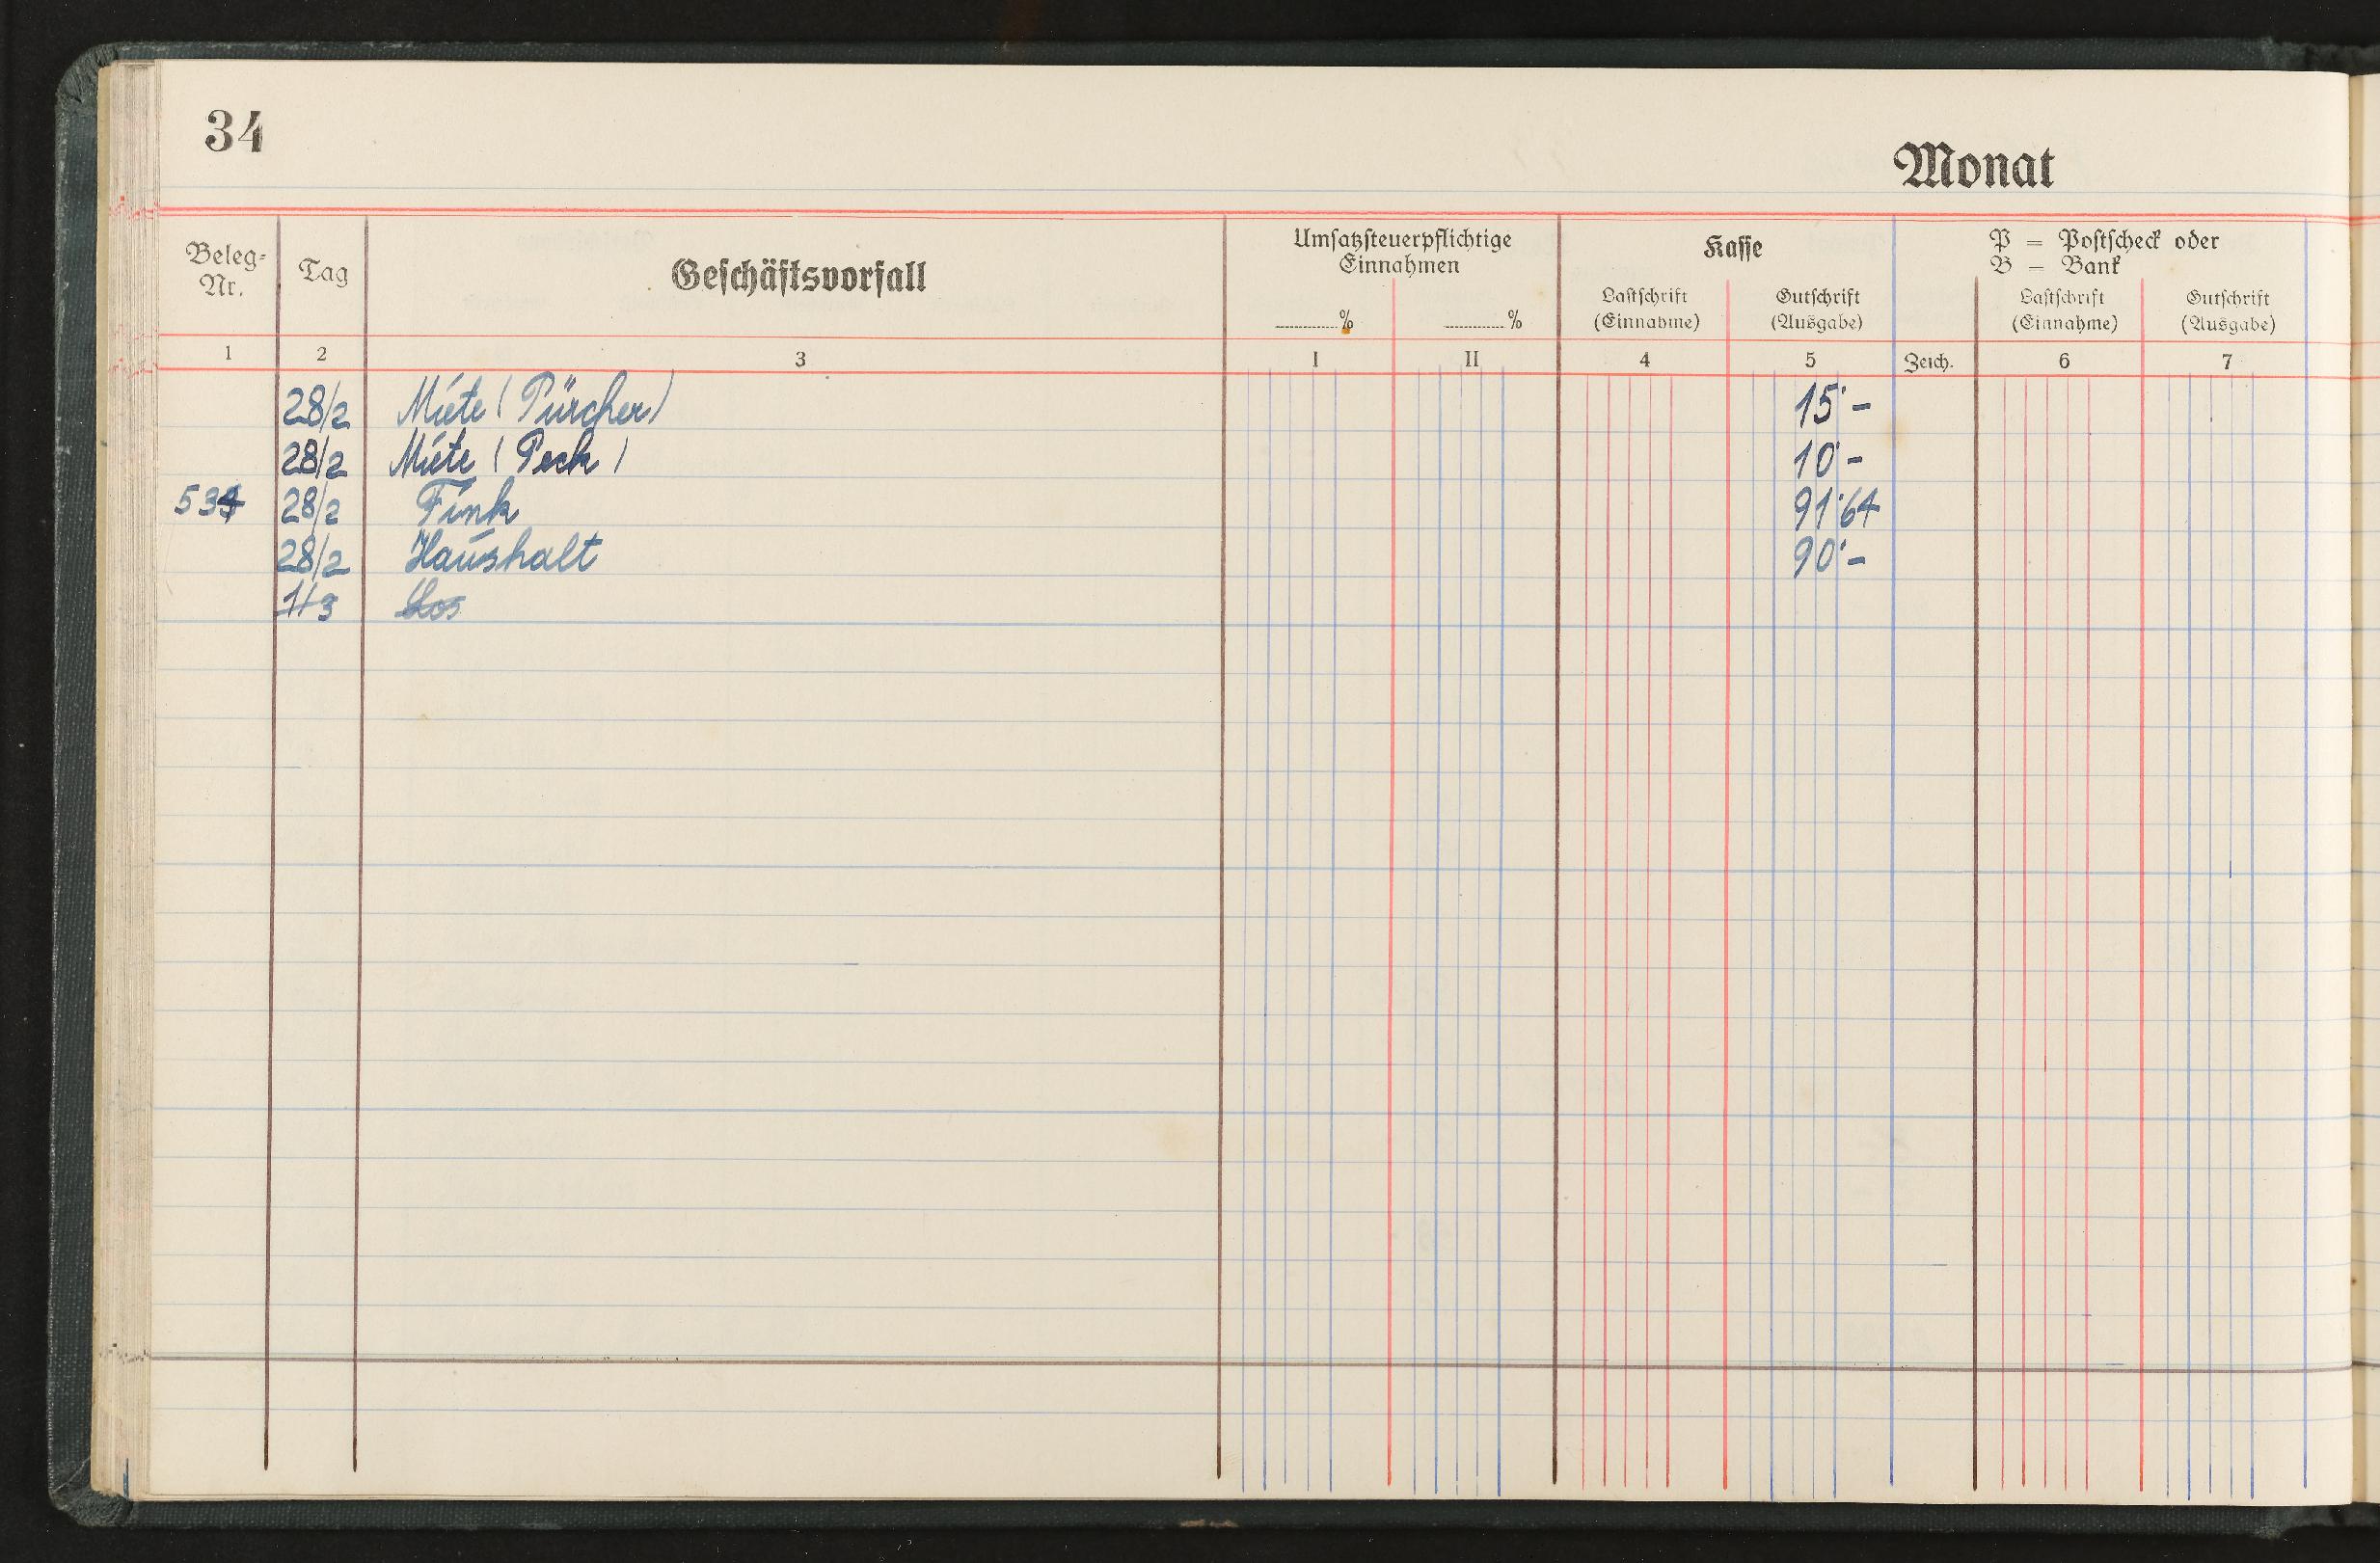 34
Monat
Beleg-
Nr.
Tag
Geschäftsvorfall
Umsatzsteuerpflichtige
Einnahmen
% %
Kasse
Lastschrift
(Einnahme)
Gutschrift
(Ausgabe)
P = Postscheck oder
B = Bank
Lastschrift
(Einnahme)
Gutschrift
(Ausgabe)
1 2 3 I II 4 5 Zeich. 6 7
28/2 Miete (Pürcher) 15·-
28/2 Miete (Peck) 10·-
534 28/2 Fink 91·64
28/2 Haushalt 90·-
1/3 Los